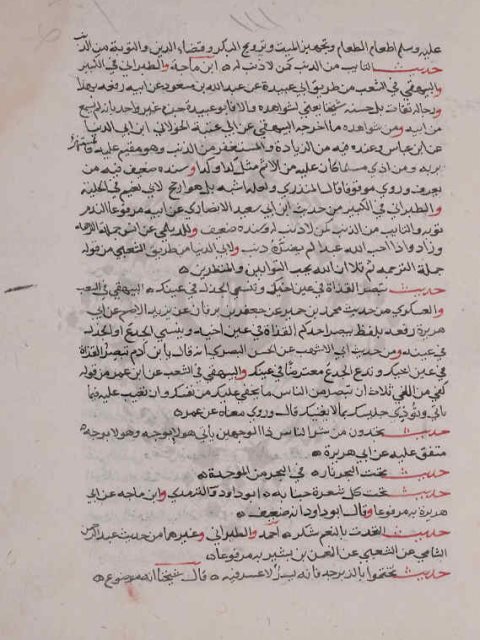 عليه وسلم اطعام الطعام وتجهيز الميت وتزويج البكر وقضاء الدين والتوبة من الذنب
حديث التايب من الذنب كمن لا ذنب له ابن ماجة والطبراني في الكبير
والبيهقي في الشعب من طريق ابي عبيدة عن عبد الله بن مسعود عن ابيه رفعه بهذا
ورجاله ثقات بل حسنه شيخنا يعني لشواهده والا فابو عبيدة جزم غير واحد بانه لم يسمع
من ابيه ومن شواهده ما اخرجه البيهقي عن ابي عتبة الخولاني ابن ابي الدنيا
عن ابن عباس وعنده فيه من الزيادة والمستغفر من الذنب وهو مقيم عليه كالمستهزئ
بربه ومن اذي مسلما كان عليه من الاثم مثل كذا وكذا وسنده ضعيف فيه من
لا يعرف وروي موقوفا قال المنذري ولعله اشبه بل هو ارجح لابي نعيم في الحلية
والطبراني في الكبير من حديث ابن ابي سعيد الانصاري عن ابيه مرفوعا الندم
توبة والتايب من الذنب كمن لا ذنب له وسنده ضعيف وللديلمي عن انس جملة الترجمة
وزاد واذا احب الله عبدا لم يضره ذنب ولابن ابي الدنيا من طريق الشعبي من قوله
جملة الترجمة ثم تلا ان الله يحب التوابين والمتطهرين
حديث تبصر القذاة في عين اخيك وتنسي الجذل في عينك البيهقي في الشعب
والعسكري من حديث محمد بن حمير عن جعفر بن برقان عن يزيد الاصم عن ابي
هريرة رفعه بلفظ يبصر احدكم القذاة في عين اخيه وينسي الجذع او الجذل
في عينه ومن حديث ابي الاشهب عن الحسن البصري انه قال يا ابن ادم تبصر القذاة
في عين اخيك وتدع الجذع معترضا في عينك والبيهقي في الشعب عن ابن عمر من قوله
كفي من الغي ثلاث ان تبصر من الناس ما يخفي عليك من نفسك وان تعيب عليهم فيما
تاتي وتؤذي جليسك بما لا يعنيك قال وروي معناه عن عمر
حديث تجدون من شر الناس ذا الوجهين ياتي هولا بوجه وهولا بوجه
متفق عليه عن ابي هريرة
حديث تحت البحر نار في البحر من الموحدة
حديث تحت كل شعرة جنابة ابو داود والترمذي وابن ماجه عن ابي
هريرة به مرفوعا وقال ابو داود انه ضعيف
حديث التحدث بالنعم شكر احمد والطبراني وغيرهما من حديث عبد الرحمن
الشامي عن الشعبي عن النعمن بن بشير به مرفوعا
حديث تختموا بالزبرجد فانه يسر لا عسر فيه قال شيخنا انه موضوع